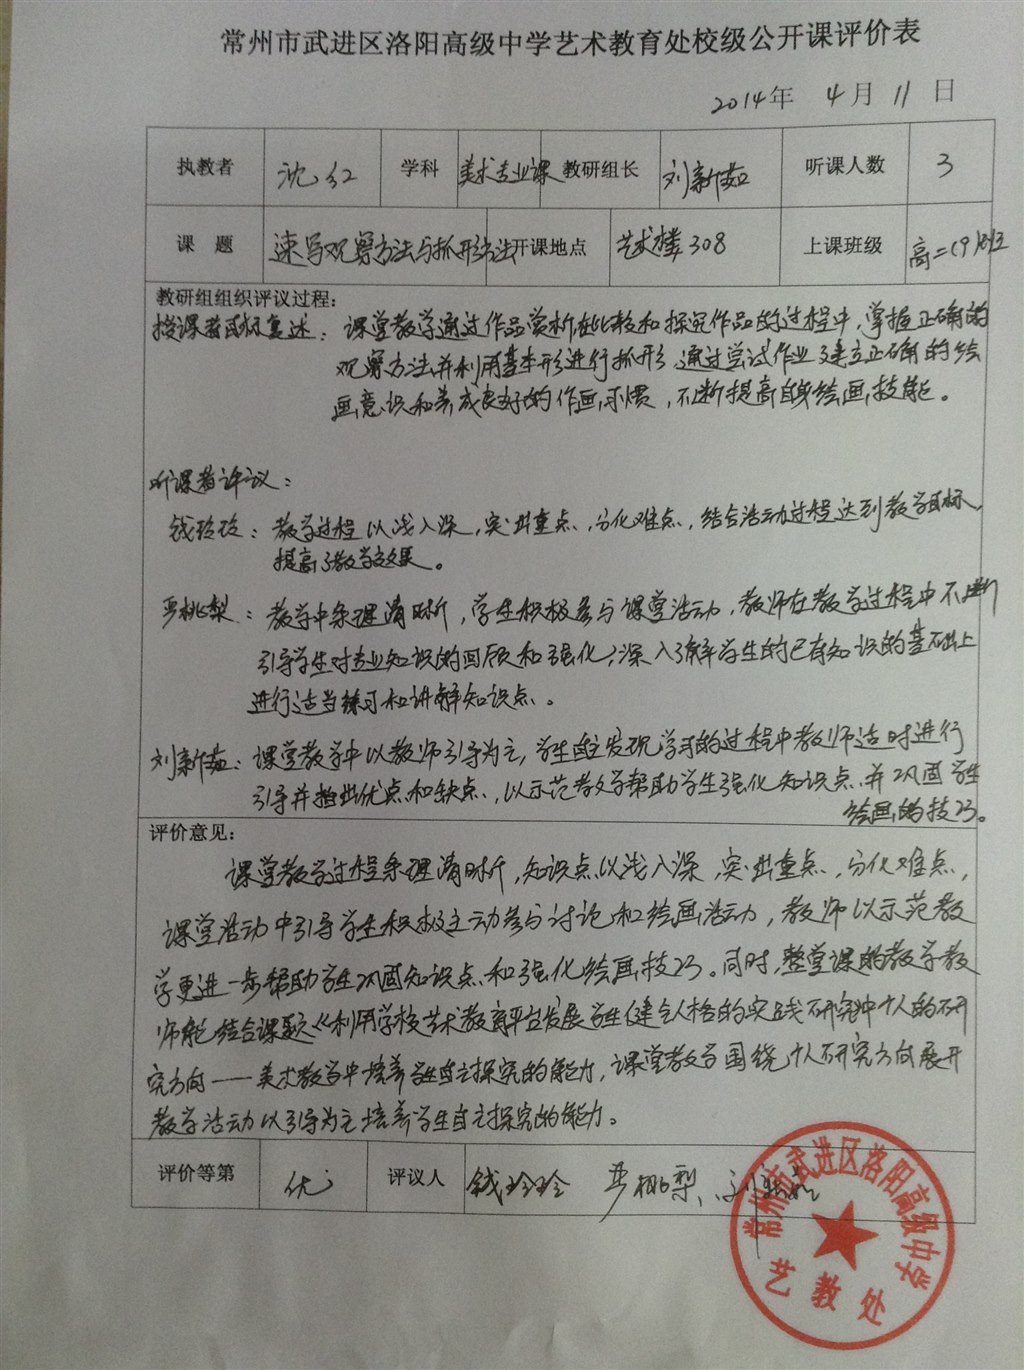 常州市武进区洛阳高级中学艺术教育处校级公开课评价表
2014年 4月 11日
执教者 沈红 学科 美术专业课 教研组长 刘新茹 听课人数 3
课 题 速写观察方法与抓形方法 开课地点 艺术楼308 上课班级 高二(9)班
教研组组织评议过程：
授课者目标复述：课堂教学通过作品赏析在比较和探究作品的过程中，掌握正确的
观察方法并利用基本形进行抓形，通过尝试作业建立正确的绘
画意识和养成良好的作画习惯，不断提高自身绘画技能。
听课者评议：
钱玲玲：教学过程以浅入深，突出重点，分化难点，结合活动过程达到教学目标，
提高了教学效果。
严桃梨：教学中条理清晰，学生积极参与课堂活动，教师在教学过程中不断
引导学生对专业知识的回顾和强化，深入了解学生的已有知识的基础上
进行适当练习和讲解知识点。
刘新茹：课堂教学中以教师引导为主，学生自主发现学习的过程中教师适时进行
引导并指出优点和缺点，以示范教学帮助学生强化知识点，并巩固学生
绘画的技巧。
评价意见：
课堂教学过程条理清晰，知识点以浅入深，突出重点，分化难点，
课堂活动中引导学生积极主动参与讨论和绘画活动，教师以示范教
学更进一步帮助学生巩固知识点和强化绘画技巧。同时，整堂课的教学教
师能结合课题《利用学校艺术教育平台发展学生健全人格的实践研究》中个人的研
究方向——美术教学中培养学生自主探究的能力，课堂教学围绕个人研究方向展开
教学活动以引导为主培养学生自主探究的能力。
评价等第 优 评议人 钱玲玲 严桃梨、刘新茹
常州市武进区洛阳高级中学
艺教处